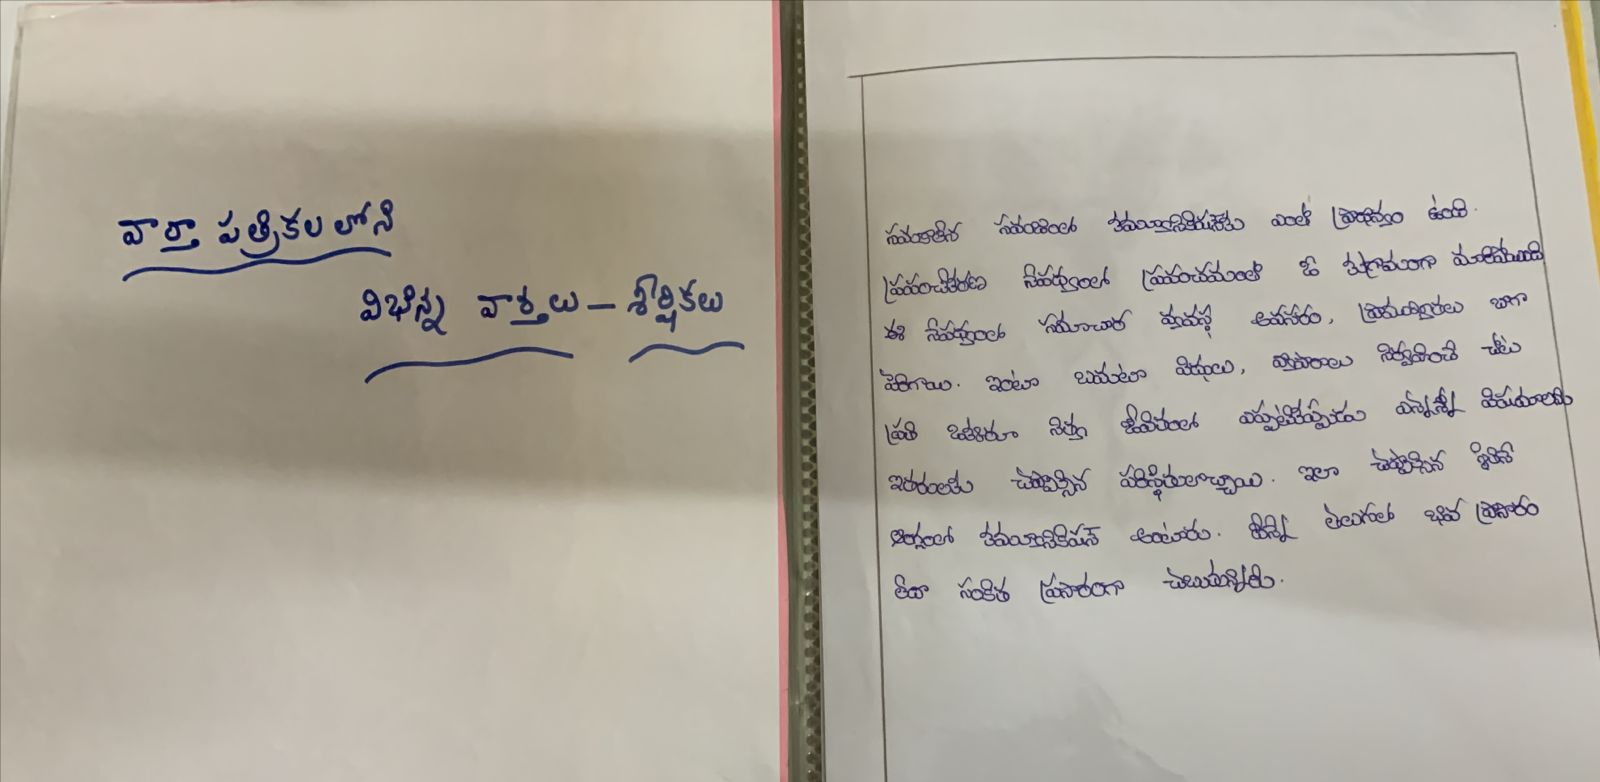 వార్తా పత్రికలలోని
విభిన్న వార్తలు - శీర్షికలు
సమకాలీన సమాజంలో కమ్యూనికేషన్‌కు ఎంతో ప్రాధాన్యం ఉంది.
ప్రపంచీకరణ నేపథ్యంలో ప్రపంచమంతా ఓ కుగ్రామంగా మారిపోయింది
ఈ నేపథ్యంలో సమాచార వ్యవస్థ అవసరం, ప్రాముఖ్యతలు బాగా
పెరిగాయి. ఇంటా బయటా విధులు, వ్యాపారాలు నిర్వహించే చోట
ప్రతి ఒక్కరూ నిత్య జీవితంలో ఎప్పటికప్పుడు ఎన్నెన్నో విషయాలను
ఇతరులకు చెప్పాల్సిన పరిస్థితులొచ్చాయి. ఇలా చెప్పాల్సిన
కమ్యూనికేషన్ అంటారు. దీన్నే తెలుగులో భావ ప్రసారం
లేదా సంకేత ప్రసారంగా చెబుతున్నారు.